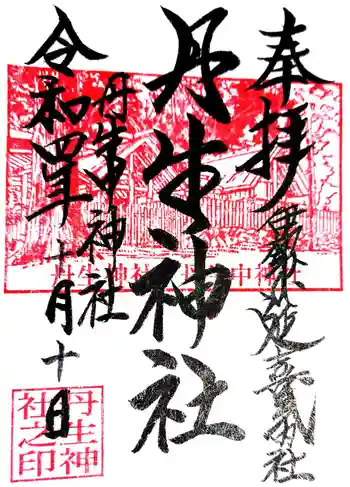 奉拝
伊勢延喜式内社
丹生神社
丹生中神社
令和四年十一月十日
丹生神社 丹生中神社
丹生神
社之印